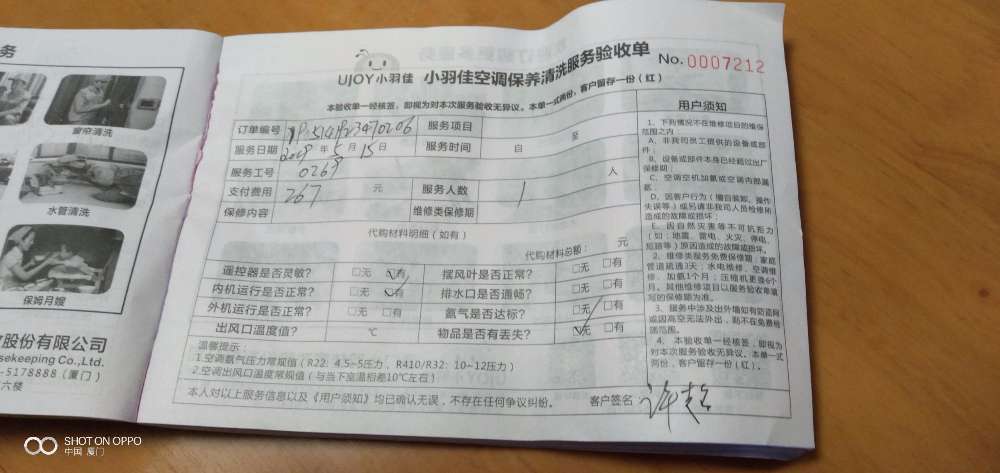 务
窗帘清洗
水管清洗
保姆月嫂
股份有限公司
sekeeping Co.,Ltd.
-5178888（厦门）
六楼
UJOY小羽佳 小羽佳空调保养清洗服务验收单
No. 0007212
本验收单一经核签，即视为对本次服务验收无异议。本单一式两份，客户留存一份（红）
订单编号
服务项目
服务日期 年 5 月 15 日 服务时间 自 至
服务工号 0269
支付费用 267 元 服务人数 1 人
保修内容 维修类保修期
代购材料明细（如有）
代购材料总额： 元
遥控器是否灵敏？ □无 □有 摆风叶是否正常？ □无 □有
内机运行是否正常？ □无 □有 排水口是否通畅？ □无 □有
外机运行是否正常？ □无 □有 氨气是否达标？ □无 □有
出风口温度值？ ℃ 物品是否有丢失？ □无 □有
温馨提示：
1.空调氨气压力常规值（R22: 4.5~5压力，R410/R32: 10~12压力）
2.空调出风口温度常规值（与当下室温相差10℃左右）
本人对以上服务信息以及《用户须知》均已确认无误，不存在任何争议纠纷。
客户签名
用户须知
1、下列情况不在维修项目的维保
范围之内
A、非我司员工提供的设备或部
件；
B、设备或部件本身已经超过出厂
保修期；
C、空调空机加氨或空调内部漏
氨；
D、因客户行为（擅自装卸、操作
失误等）或另请非我司人员检修所
造成的故障或损坏；
E、因自然灾害等不可抗拒力
（如：地震、雷电、火灾、停电、
短路等）原因造成的故障或损坏。
2、维修类服务免费保修期：家庭
管道疏通3天；水电维修、空调维
修、加氨1个月；压缩机更换6个
月。其他维修项目以服务验收单填
写的保修期为准。
3、服务中涉及出外墙如有防盗网
或因高空无法外出，则不在免费检
测范围。
4、本验收单一经核签，即视为
对本次服务验收无异议。本单一式
两份，客户留存一份（红）
SHOT ON OPPO
中国 厦门